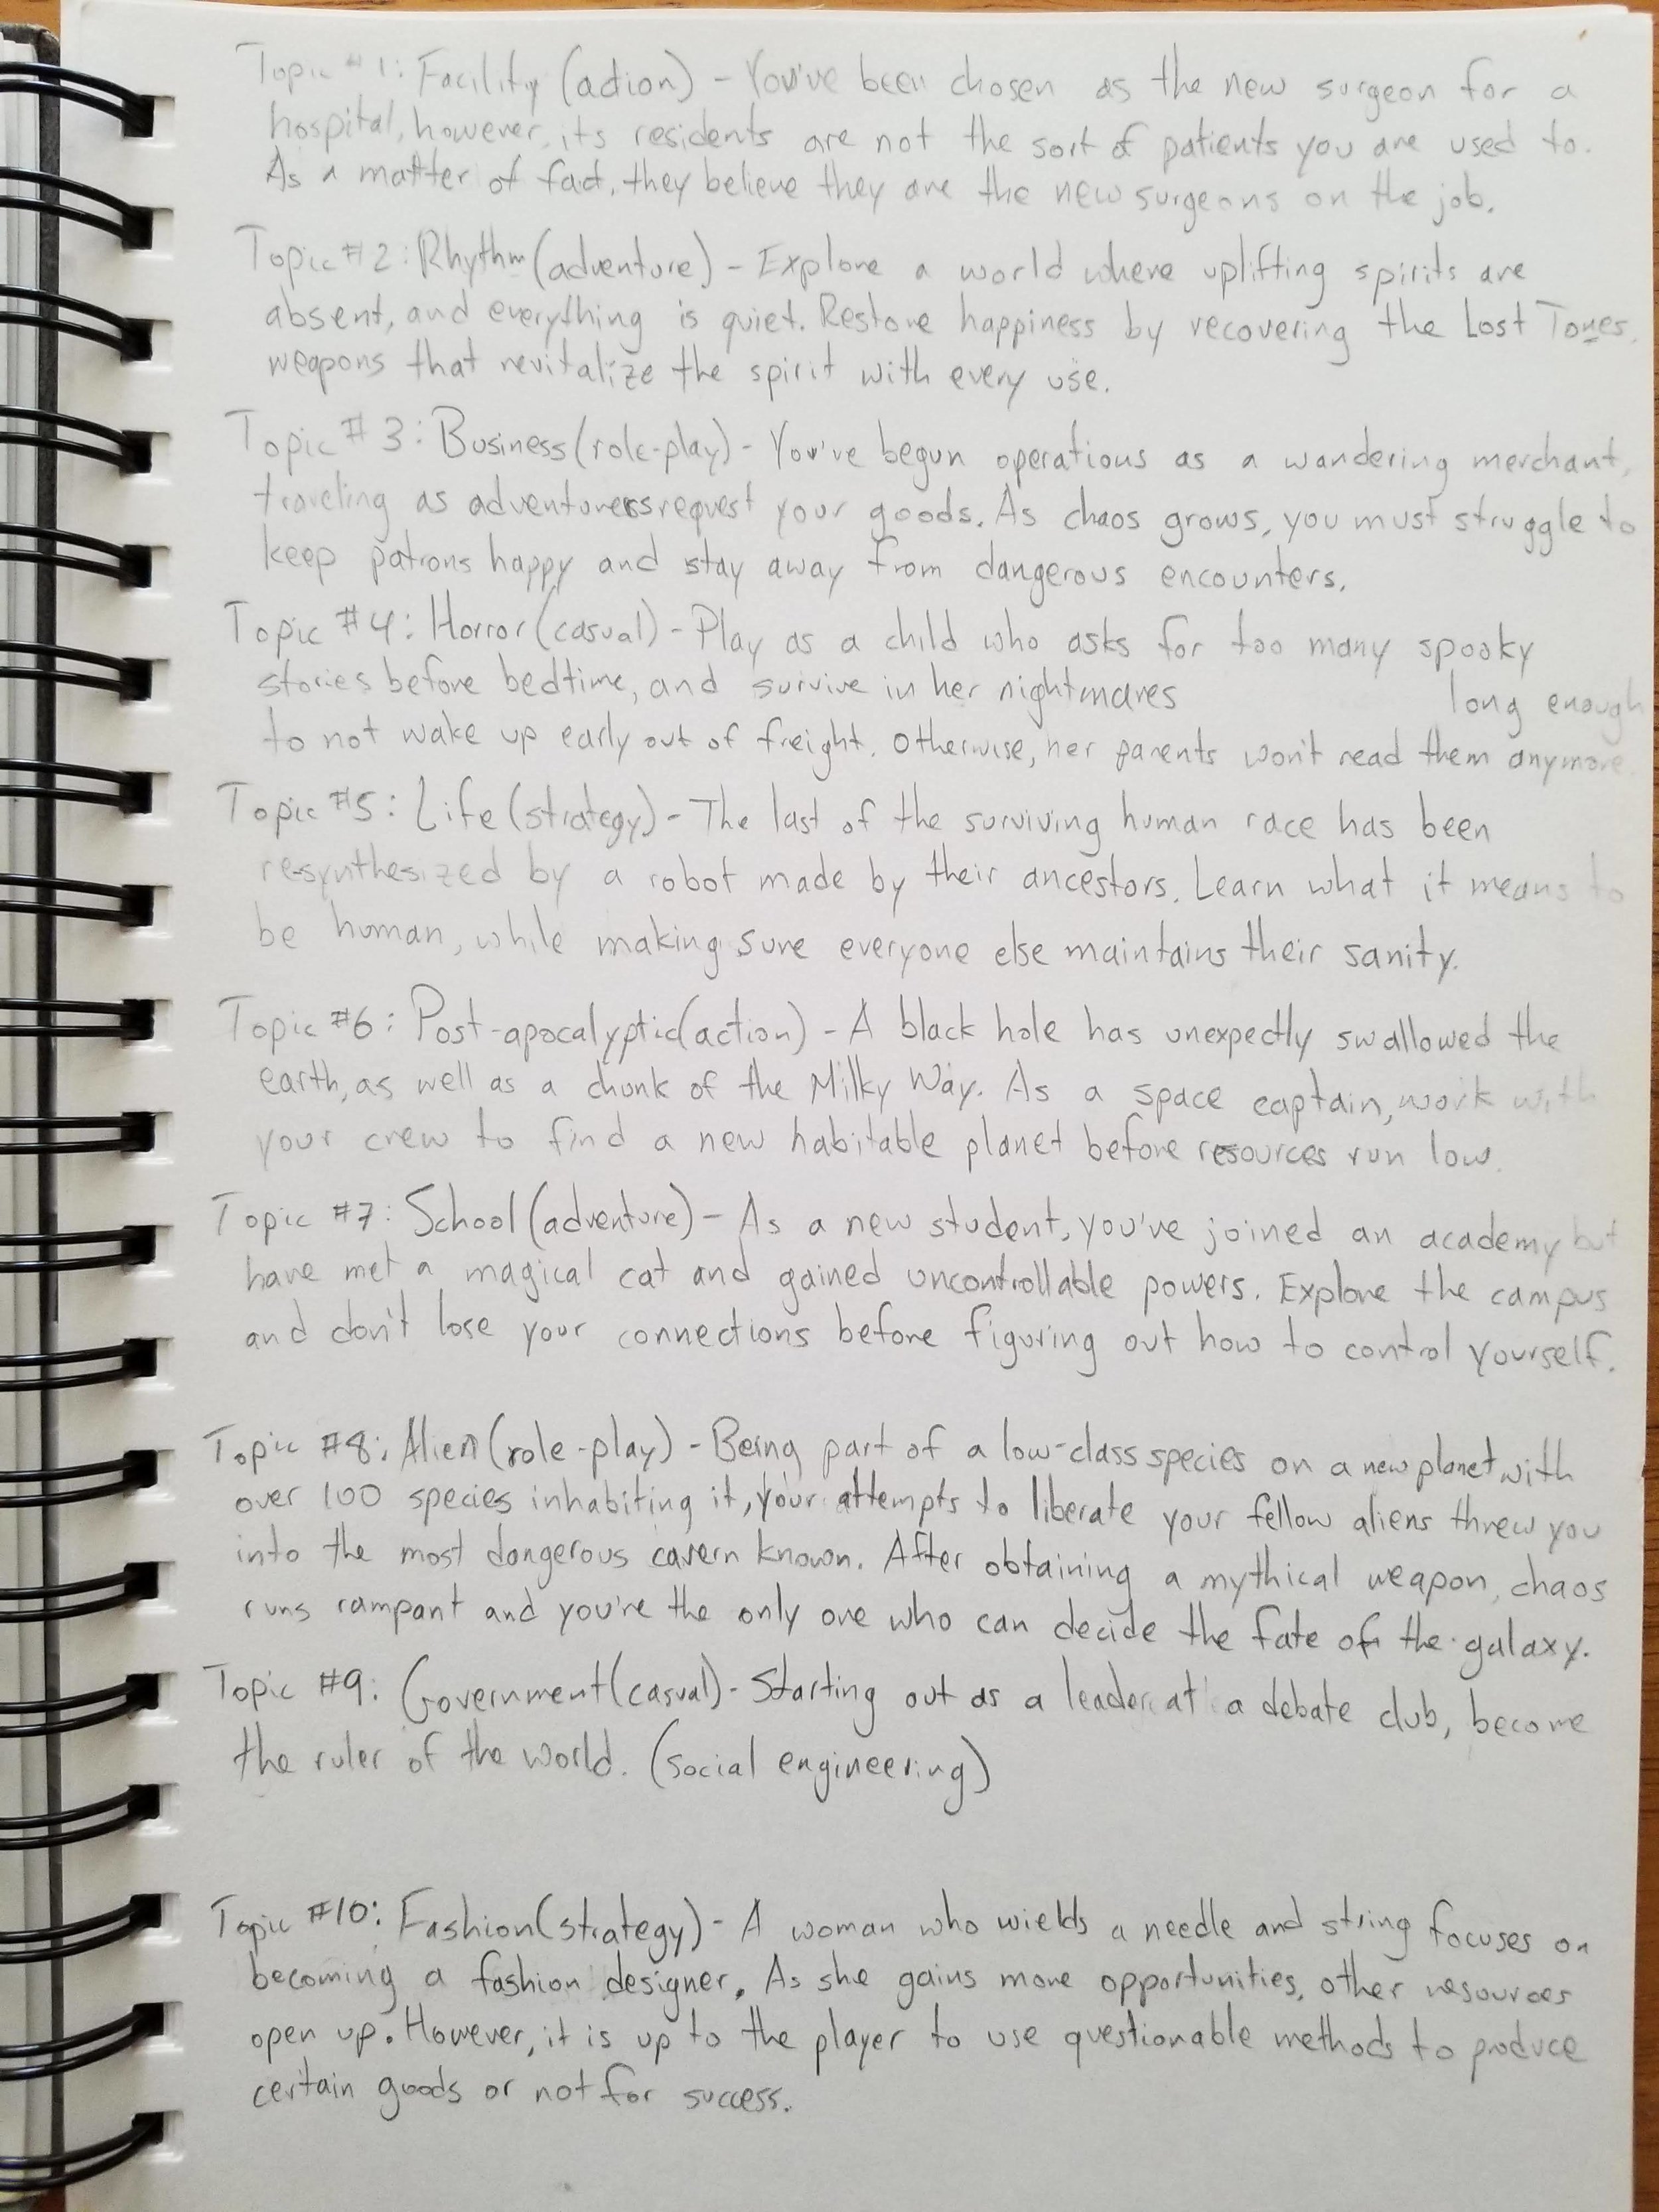 Topic #1: Facility (action) - You've been chosen as the new surgeon for a
hospital, however, its residents are not the sort of patients you are used to.
As a matter of fact, they believe they are the new surgeons on the job.
Topic #2: Rhythm (adventure) - Explore a world where uplifting spirits are
absent, and everything is quiet. Restore happiness by recovering the Lost Tones,
weapons that revitalize the spirit with every use.
Topic #3: Business (role-play) - You've begun operations as a wandering merchant,
traveling as adventurers request your goods. As chaos grows, you must struggle to
keep patrons happy and stay away from dangerous encounters.
Topic #4: Horror (casual) - Play as a child who asks for too many spooky
stories before bedtime, and survive in her nightmares long enough
to not wake up early out of freight. Otherwise, her parents won't read them anymore.
Topic #5: Life (strategy) - The last of the surviving human race has been
resynthesized by a robot made by their ancestors. Learn what it means to
be human, while making sure everyone else maintains their sanity.
Topic #6: Post-apocalyptic (action) - A black hole has unexpectly swallowed the
earth, as well as a chunk of the Milky Way. As a space captain, work with
your crew to find a new habitable planet before resources run low.
Topic #7: School (adventure) - As a new student, you've joined an academy but
have met a magical cat and gained uncontrollable powers. Explore the campus
and don't lose your connections before figuring out how to control yourself.
Topic #8: Alien (role-play) - Being part of a low-class species on a new planet with
over 100 species inhabiting it, your attempts to liberate your fellow aliens threw you
into the most dangerous cavern known. After obtaining a mythical weapon, chaos
runs rampant and you're the only one who can decide the fate of the galaxy.
Topic #9: Government (casual) - Starting out as a leader at a debate club, become
the ruler of the world. (social engineering)
Topic #10: Fashion (strategy) - A woman who wields a needle and string focuses on
becoming a fashion designer. As she gains more opportunities, other resources
open up. However, it is up to the player to use questionable methods to produce
certain goods or not for success.